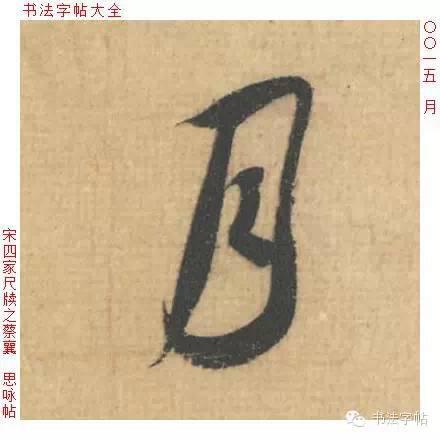 书法字帖大全
〇〇一五 月
月
宋四家尺牍之蔡襄 思咏帖
书法字帖